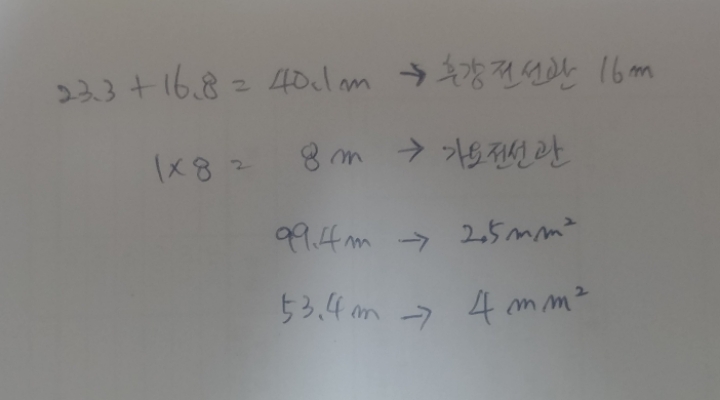 23.3 + 16.8 = 40.1m → 후강전선관 16m
1 × 8 = 8m → 가요전선관
99.4m → 2.5mm²
53.4m → 4mm²